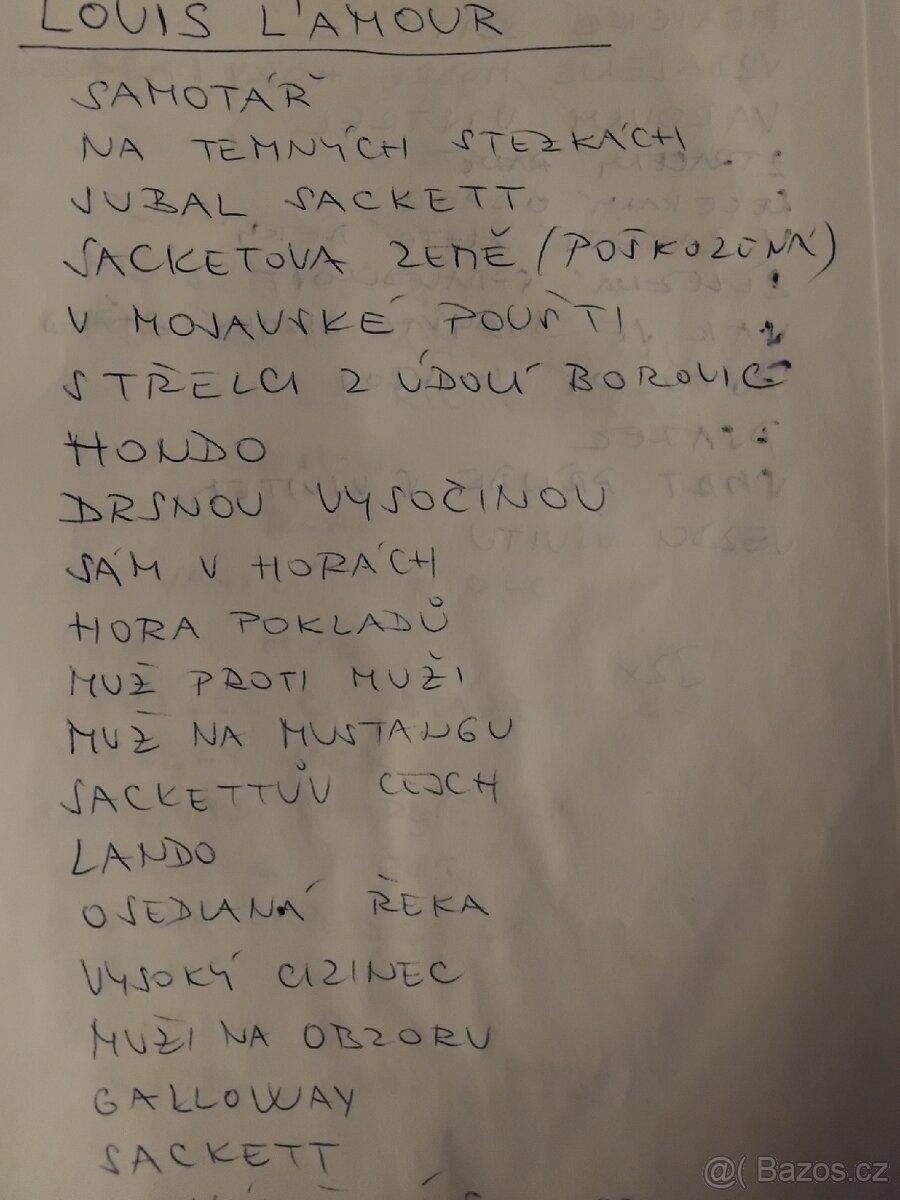 LOUIS L'AMOUR
SAMOTÁŘ
NA TEMNÝCH STEZKÁCH
JUBAL SACKETT
SACKETOVA ZEMĚ (POŠKOZENÁ)
V MOJAVSKÉ POUŠTI
STŘELCI Z ÚDOLÍ BOROVIC
HONDO
DRSNOU VYSOČINOU
SÁM V HORÁCH
HORA POKLADŮ
MUŽ PROTI MUŽI
MUŽ NA MUSTANGU
SACKETTŮV CEJCH
LANDO
OSEDLANÁ ŘEKA
VYSOKÝ CIZINEC
MUŽI NA OBZORU
GALLOWAY
SACKETT
@( Bazos.cz